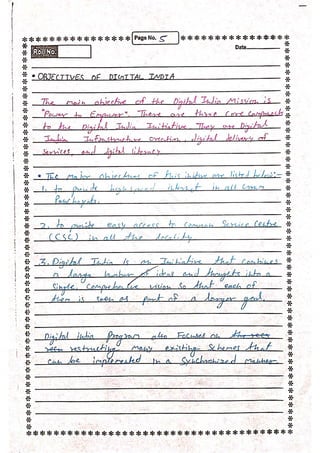 Page No. 5
Roll No.
Date
• OBJECTIVES OF DIGITAL INDIA
The main objective of the Digital India Mission is
"Power to Empower". There are three core components
to the Digital India Initiative They are Digital
India Infrastructure creation, digital delivery of
services, and digital literacy
• The major objectives of this initiative are listed below:-
1. to provide high speed internet in all Gram
Panchayats.
2. to provide easy access to Common Service Centre
(CSC) in all the locality.
3. Digital India is an Initiative that combines
a large number of ideas and thoughts into a
single, comprehensive vision so that each of
them is seen as part of a larger goal.
Digital India Program also Focuses on
restructuring many existing schemes that
can be implemented in a Synchronized manner